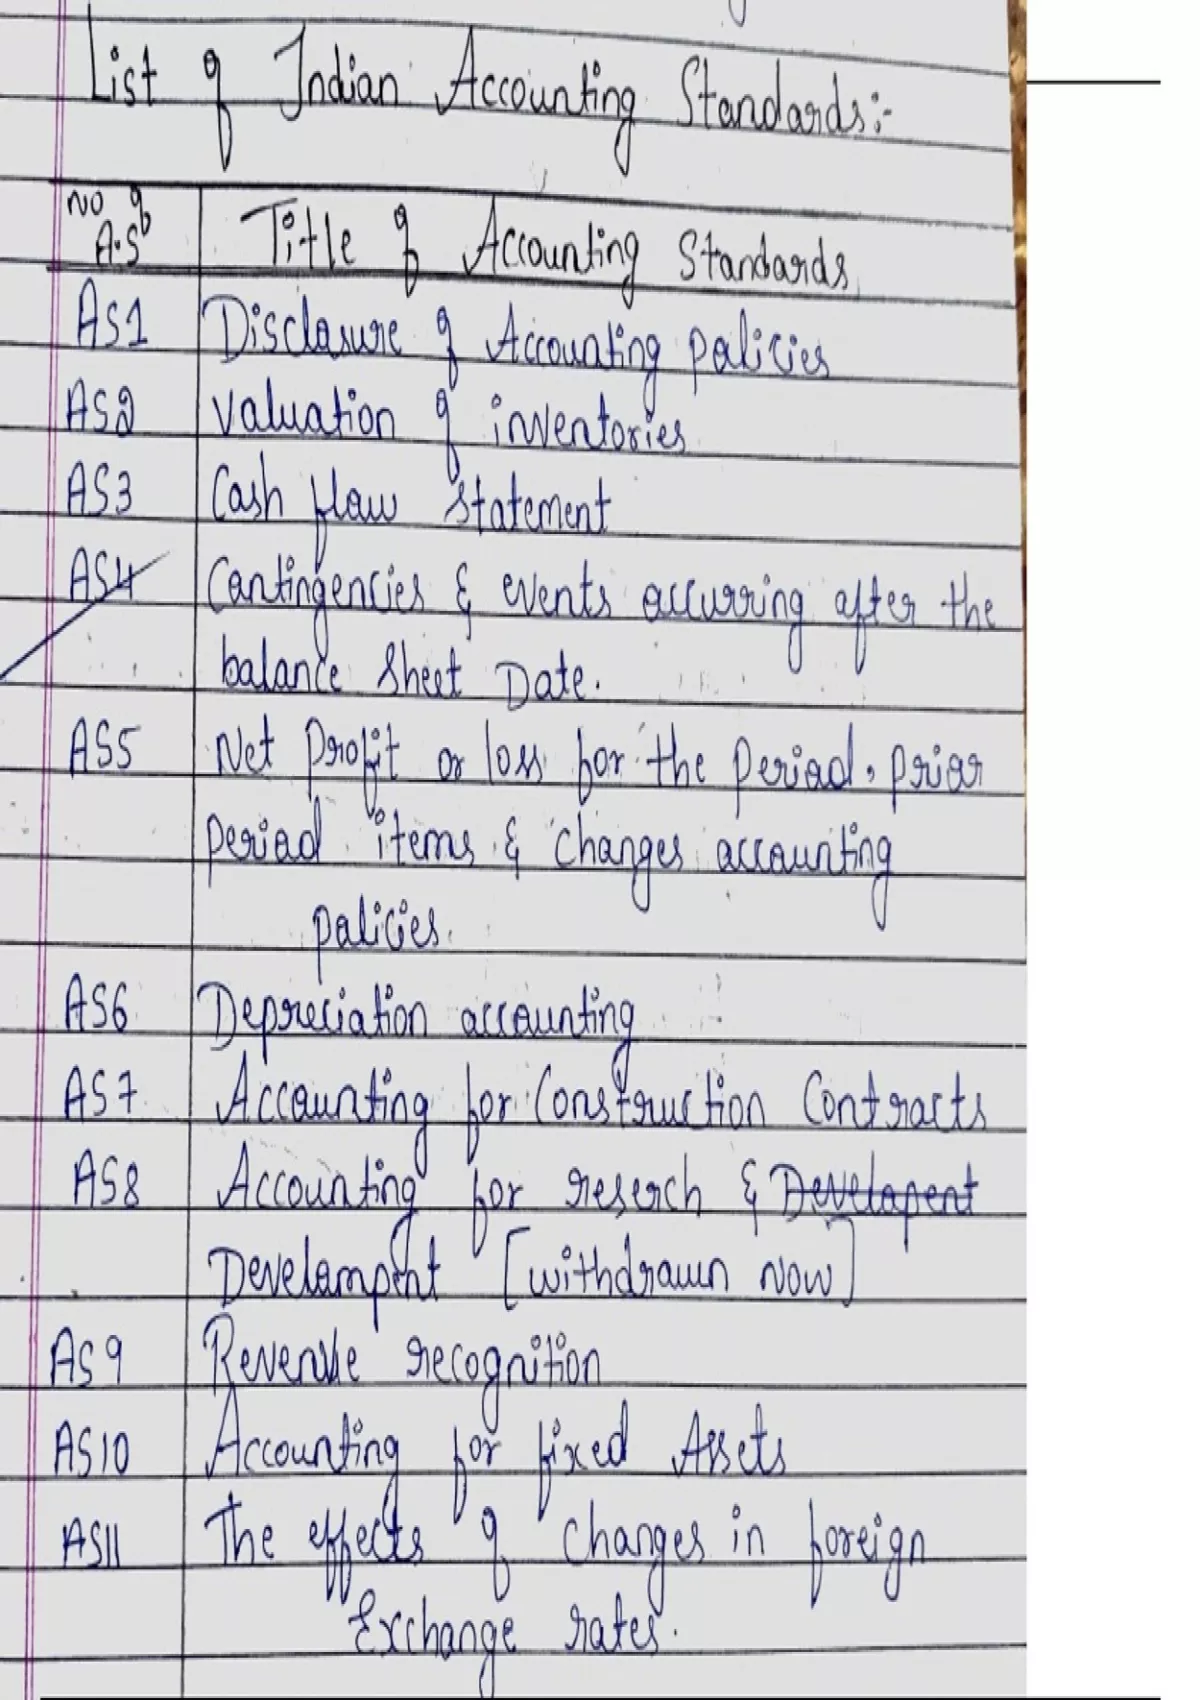 List of Indian Accounting Standards:-
No of A.S
Title of Accounting Standards
AS1 Disclosure of Accounting policies
AS2 Valuation of inventories
AS3 Cash flow statement
AS4 Contingencies & events occurring after the
balance Sheet Date.
AS5 Net Profit or loss for the period, prior
period items & changes accounting
policies.
AS6 Depreciation accounting
AS7 Accounting for Construction Contracts
AS8 Accounting for reserch & Developent
Development [withdrawn now]
AS9 Revenue recognition
AS10 Accounting for fixed Assets
AS11 The effects of changes in foreign
Exchange rates.